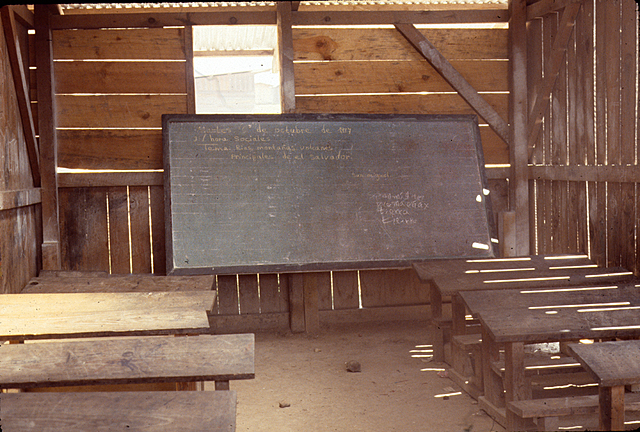 Martes de octubre de 197
1/ hora sociales
Tema: Rios montañas volcanes
principales de el salvador
San miguel
tierra